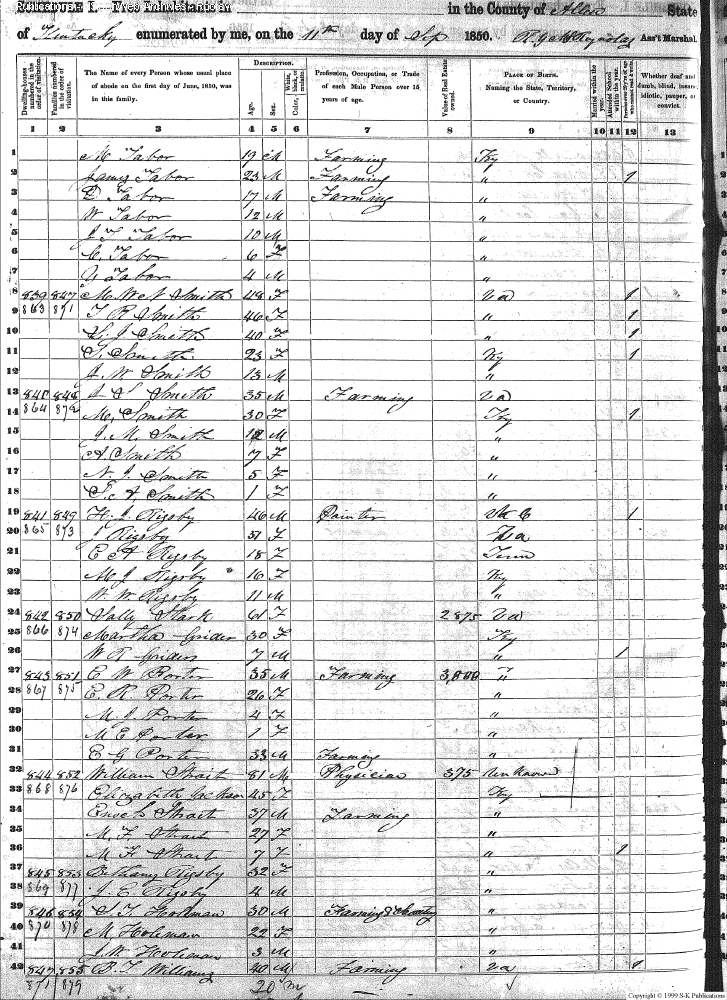 in the County of Allen State
of Kentucky enumerated by me, on the 11th day of Sep 1850. Ass't Marshal.
DESCRIPTION.
Dwelling-houses numbered in the order of visitation.
Families numbered in the order of visitation.
The Name of every Person whose usual place of abode on the first day of June, 1850, was in this family.
Age.
Sex.
White, black, or mulatto.
Color,
Profession, Occupation, or Trade of each Male Person over 15 years of age.
Value of Real Estate owned.
PLACE OF BIRTH. Naming the State, Territory, or Country.
Married within the year.
Attended School within the year.
Persons over 20 y'rs of age who cannot read & write.
Whether deaf and dumb, blind, insane, idiotic, pauper, or convict.
1 2 3 4 5 6 7 8 9 10 11 12 13
1 M Tabor 19 M Farming Ky
2 James Tabor 23 M Farming " 1
3 Tabor 17 M Farming "
4 W Tabor 12 M "
5 J T Tabor 10 M "
6 C. Tabor 6 F "
7 Tabor 4 M "
8 839 847 M W N Smith 48 F Va 1
9 863 871 T R Smith 46 F " 1
10 S. J Smith 40 F " 1
11 S. Smith 23 F Ky 1
12 J. W Smith 13 M "
13 840 848 S Smith 35 M Farming Va
14 864 872 M. Smith 30 F Ky 1
15 J. M. Smith 12 M "
16 A Smith 7 F "
17 N. J. Smith 5 F "
18 S. A. Smith 1 F "
19 841 849 H. J. Rigsby 46 M Painter N C 1
20 865 873 Rigsby 31 F Va
21 E A Rigsby 18 F Tenn
22 M J Rigsby 16 F Ky
23 W. W. Rigsby 11 M "
24 842 850 Sally Stark 61 F 2875 Va
25 866 874 Martha Grider 30 F Ky
26 W R Grider 7 M " 1
27 843 851 E W Porter 35 M Farming 3,800 "
28 867 875 E R Porter 26 F "
29 M. J Porter 4 F "
30 M E Porter 1 F "
31 E G Porter 33 M Farming "
32 844 852 William Strait 81 M Physician 375 Unknown
33 868 876 Elizabeth Jackson 45 F Ky
34 Enoch Strait 37 M Farming "
35 M. F Strait 27 F "
36 M F Strait 7 F " 1
37 845 853 Bethany Rigsby 32 F "
38 869 877 J. E Rigsby 4 M "
39 846 854 S. T. Holeman 30 M Farming "
40 870 878 M Holeman 22 F "
41 J. W. Holeman 3 M "
42 847 855 B. T Williams 40 M Farming Va 1
871 879 20 m
Copyright © 1999 S-K Publications